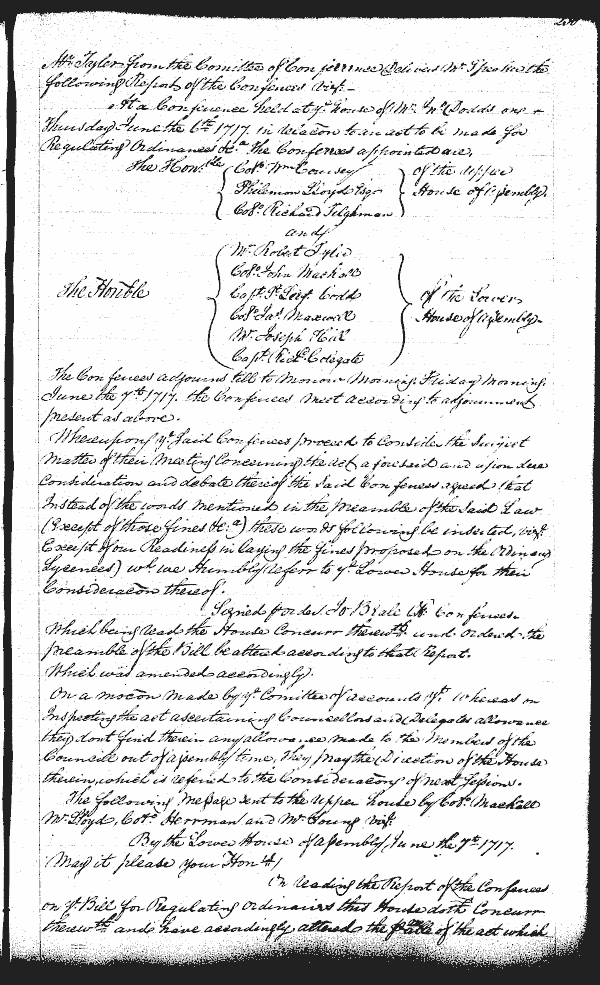 Mr. Tyler from the Comittee of Conference Delivers Mr. Speaker the
following Report of the Conferees vizt.
At a Conference held at ye. house of Mr. Jno. Dodds on
Thursday June the 6th. 1717. in relacon to an act to be made for
Regulating Ordinances &ca. the Conferees appointed are,
The Honble. Colo. Wm. Coursey of the upper
Philemon Lloyd Esqr. House of Assembly.
Colo. Richard Tilghman
and
Mr. Robert Tyler
Colo. John Mackall
The Honble Capt. St. Legr. Codd of the Lower
Colo. Jas. Maxwell House of Assembly
Mr. Joseph Hill
Capt. Richd. Colegate
The Conferees adjourns till to Morrow Morning Friday Morning
June the 7th. 1717. the Conferees meet according to adjournment
present as above.
Whereupon ye. Said Conferees proceed to Consider the Subject
matter of their Meeting Concerning the act aforesaid and upon due
Consideration and debate thereof the Said Conferees agreed that
Instead of the words mentioned in the preamble of the Said Law
(Except of those fines &ca.) these words following be inserted, vizt.
Except of our Readiness in laying the fines proposed on the Ordinary
Lycences) wch. we Humbly referr to ye. Lower House for their
Consideracon thereof.
Signed p order Jo Beale Clk Conferees.
Which being read the House Concurr therewth. and Orderd the
preamble of the Bill be altered according to that Report.
Which was amended accordingly.
On a mocon made by ye. Comittee of accounts yt. Whereas on
Inspecting the act ascertaining Councellors and Delegates allowance
they dont find therein any allowance made to the Members of the
Councill out of assembly time, They pray the Direction of the House
therein, which is referred to the Consideration of next Session.
The following Message sent to the Upper house by Colo. Mackall
Mr. Lloyd, Colo. Herrman and Mr. Young vizt.
By the Lower House of Assembly, June the 7th. 1717.
May it please your Honrs.
On reading the Report of the Conferees
on ye. Bill for Regulating Ordinaries this House doth Concurr
therewth. and have accordingly altered the of the act which